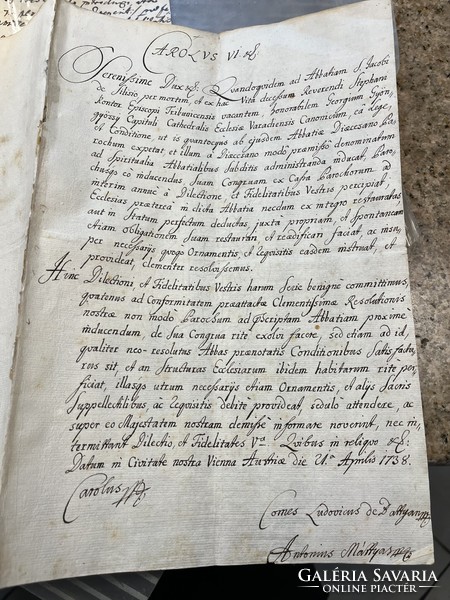 CAROLVS VI. &c.
Serenissime Dux &c. Quandoquidem ad Abbatiam S. Jacobi
de Silisio per mortem, et ex hac Vita decessum Reverendi Stephani
Kontor Episcopi Tribunicensis vacantem, honorabilem Georgium Gyön,,
gyössy Capituli Cathedralis Ecclesiæ Varadiensis Canonicum, ea Lege,
et Conditione, ut is quantocyus ab ejusdem Abbatiæ Diœcesano Pa,,
rochum expetat, et illum à Diœcesano modo præmisso denominatum
ad Spiritualia Abbatialibus Subditis administranda inducat, Paro,,
choq̃ so inducendo, Suam Congruam ex Cassa Parochorum ad
interim annuè à Dilectione, et Fidelitatibus Vestris percipiat,
Ecclesias præterea in dicta Abbatia necdum ex integro restauratas
aut in Statum perfectum deductas, juxta propriam, et Spontaneam
Etiam obligationem Suam restaurari, et readificari faciat, ac
per necessarijs quoq̃ Ornamentis, et requisitis easdem instruat, et
provideat, Clementer resolvissemus.
Hinc Dilectioni, et Fidelitatibus Vestris harum Serie benignè committimus,
quatenus ad Conformitatem præattactæ Clementissimæ Resolutionis
nostræ non modò Parochum ad præscriptam Abbatiam proximè
inducendum, de Sua Congrua ritè exolvi facere, sed etiam ad id,
qualiter neo-resolutus Abbas prænotatis Conditionibus Satis factu,,
rus sit, et an Structuras Ecclesiarum ibidem habitarum ritè per,,
ficiat, illasq̃ utrum necessarijs etiam Ornamentis, et alijs Sacris
Suppellectilibus, ac requisitis debitè provideat, sedulò attendere, ac
super eo Majestatem nostram demissè informare noverint, nec in,,
termittant Dilectio, et Fidelitates Væ. Quibus in reliquo &c.
Datum in Civitate nostra Vienna Austriæ die 11a. Aprilis 1738.
Carolus
Comes Ludovicus de Battyan
Antonius Mattyasovs
GALÉRIA SAVARIA
ONLINE PIACTÉR